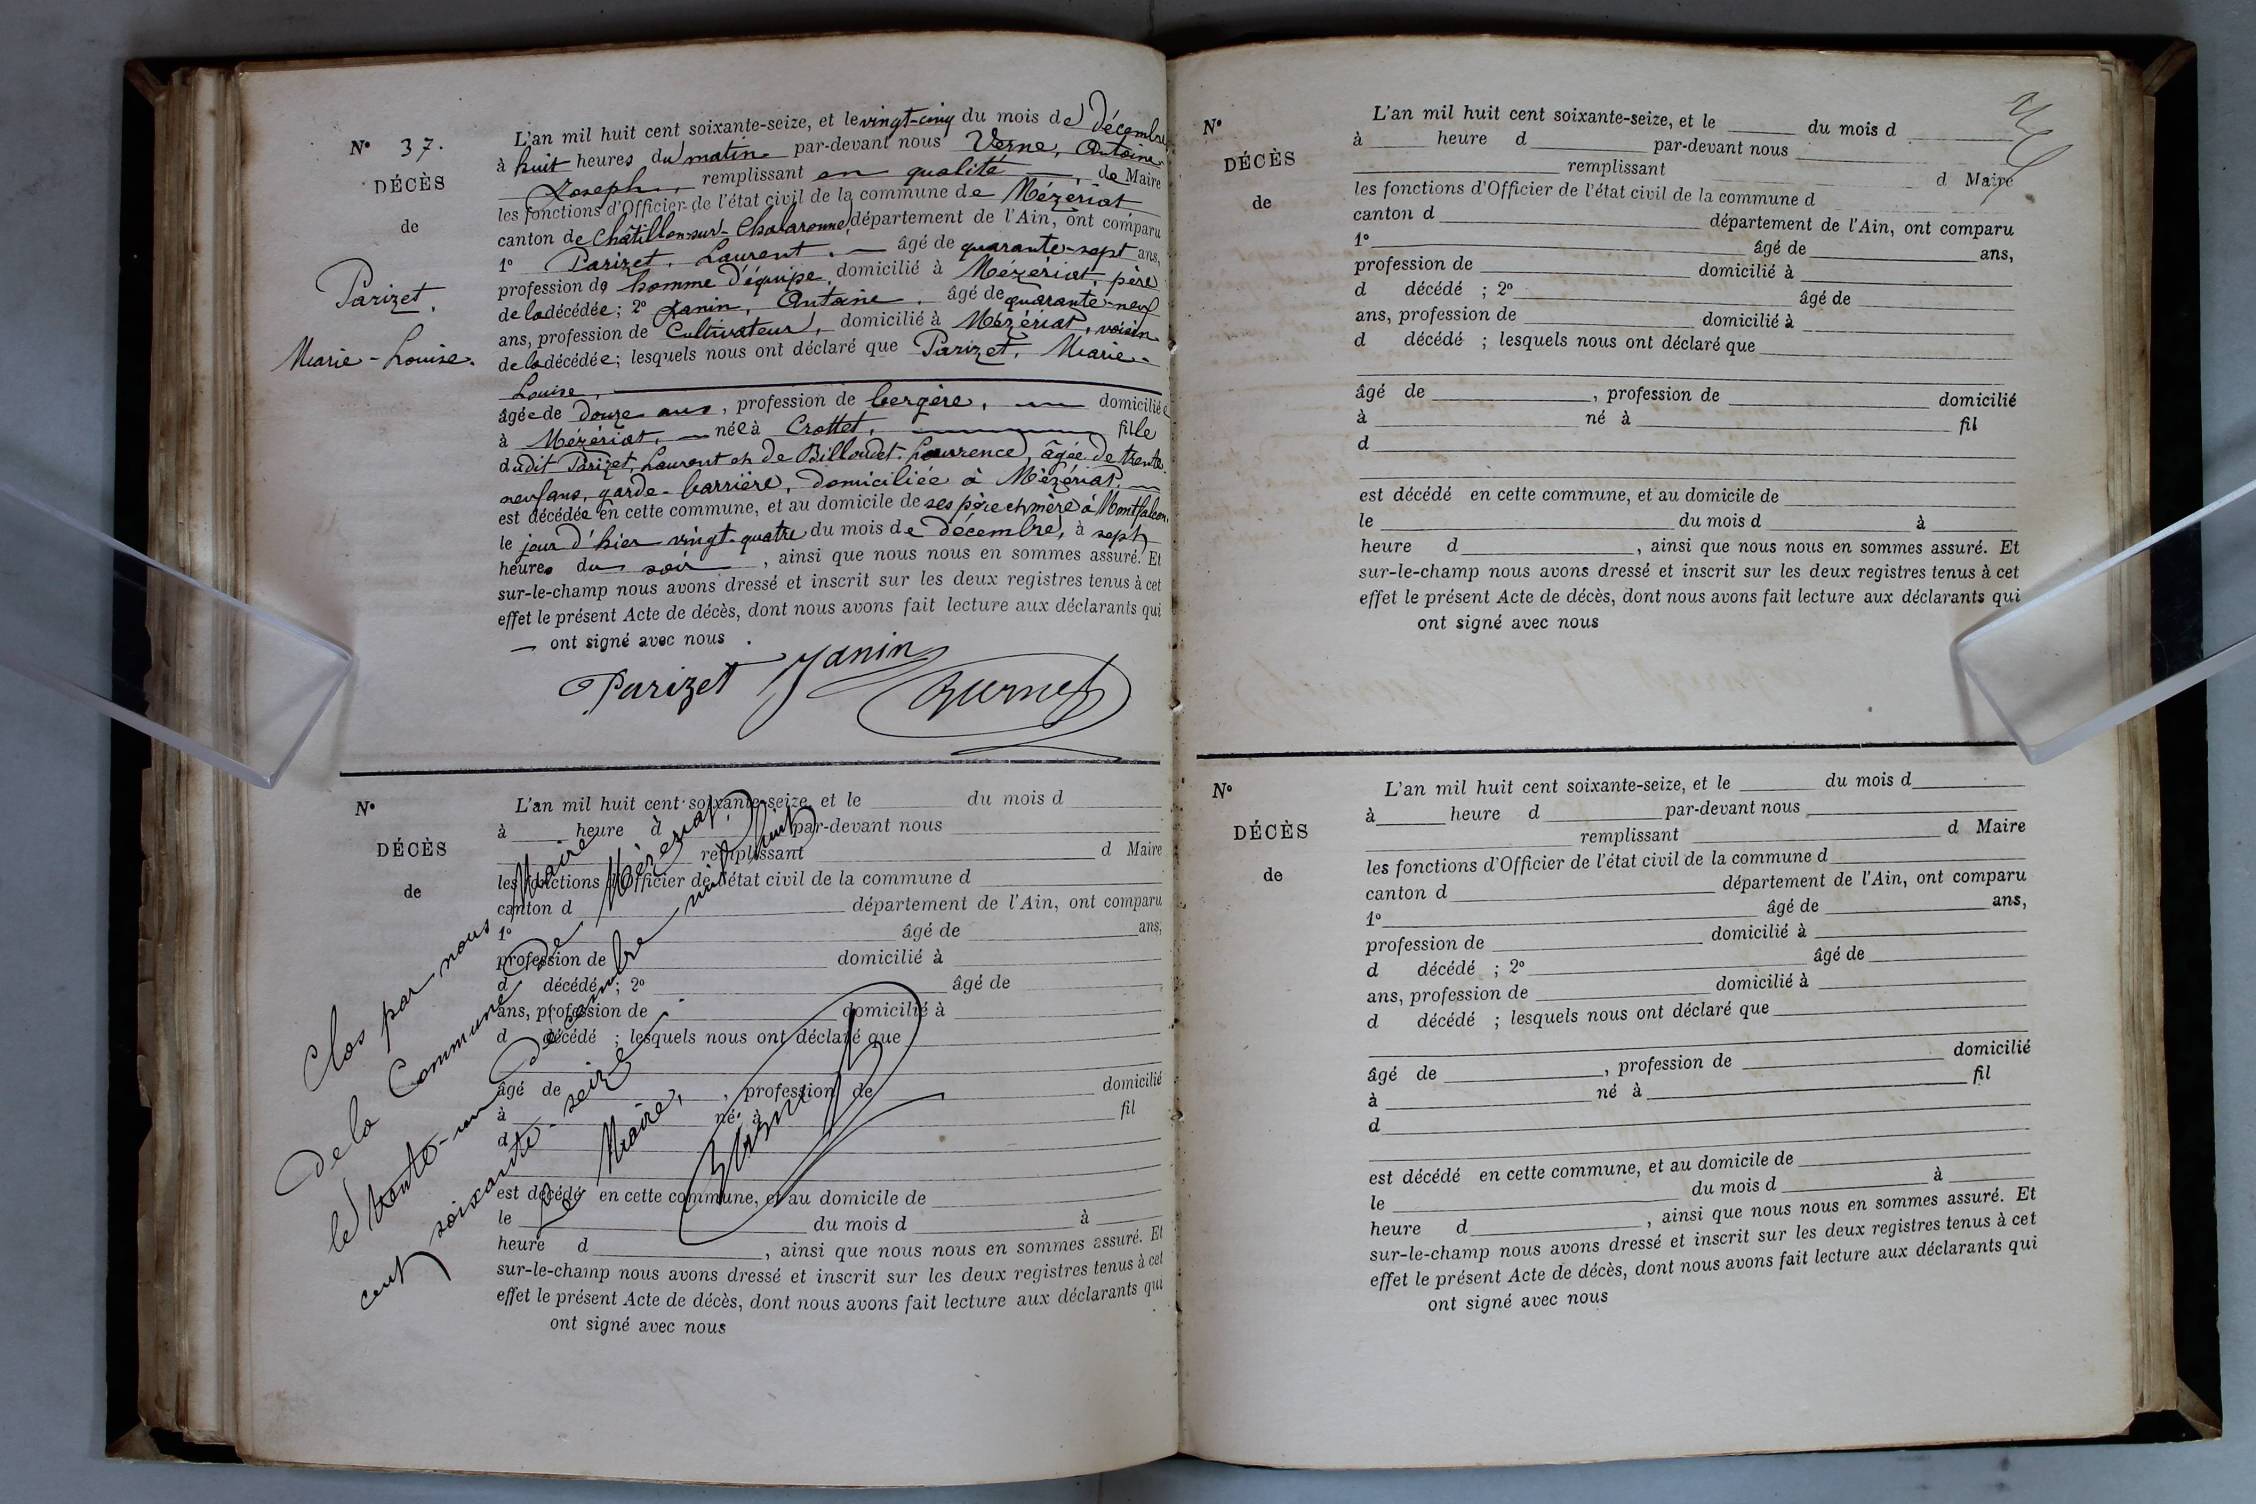 N° 37.
DÉCÈS
de
Parizet.
Marie-Louise.
L'an mil huit cent soixante-seize, et le vingt-cinq du mois de Décembre
à huit heures du matin par-devant nous Verne, Antoine
Joseph, remplissant en qualité de Maire
les fonctions d'Officier de l'état civil de la commune de Mézériat
canton de Châtillon-sur-Chalaronne, département de l'Ain, ont comparu
1° Parizet, Laurent. âgé de quarante-sept ans,
profession de homme d'équipe, domicilié à Mézériat, père
de la décédée; 2° Janin, Antoine, âgé de quarante-neuf
ans, profession de Cultivateur, domicilié à Mézériat, voisin
de la décédée; lesquels nous ont déclaré que Parizet, Marie-
Louise,
âgée de douze ans, profession de bergère, domiciliée
à Mézériat, née à Crottet, fille
dudit Parizet, Laurent et de Billoudet Laurence, âgée de trente
neuf ans, garde-barrière, domiciliée à Mézériat,
est décédée en cette commune, et au domicile de ses père et mère à Montfalcon,
le jour d'hier vingt-quatre du mois de décembre, à sept
heures du soir, ainsi que nous nous en sommes assuré. Et
sur-le-champ nous avons dressé et inscrit sur les deux registres tenus à cet
effet le présent Acte de décès, dont nous avons fait lecture aux déclarants qui
ont signé avec nous.
Parizet Janin
N°
DÉCÈS
de
L'an mil huit cent soixante-seize, et le du mois d
à heure d par-devant nous
remplissant d Maire
les fonctions d'Officier de l'état civil de la commune d
canton d département de l'Ain, ont comparu
1° âgé de ans,
profession de domicilié à
d décédé ; 2° âgé de
ans, profession de domicilié à
d décédé ; lesquels nous ont déclaré que
âgé de , profession de domicilié
à né à fil
d
est décédé en cette commune, et au domicile de
le du mois d à
heure d , ainsi que nous nous en sommes assuré. Et
sur-le-champ nous avons dressé et inscrit sur les deux registres tenus à cet
effet le présent Acte de décès, dont nous avons fait lecture aux déclarants qui
ont signé avec nous
Clos par nous Maire
de la Commune de Mézériat,
le trente-un Décembre mil huit
cent soixante-seize.
Le Maire,
N°
DÉCÈS
de
L'an mil huit cent soixante-seize, et le du mois d
à heure d par-devant nous
remplissant d Maire
les fonctions d'Officier de l'état civil de la commune d
canton d département de l'Ain, ont comparu
1° âgé de ans,
profession de domicilié à
d décédé ; 2° âgé de
ans, profession de domicilié à
d décédé ; lesquels nous ont déclaré que
âgé de , profession de domicilié
à né à fil
d
est décédé en cette commune, et au domicile de
le du mois d à
heure d , ainsi que nous nous en sommes assuré. Et
sur-le-champ nous avons dressé et inscrit sur les deux registres tenus à cet
effet le présent Acte de décès, dont nous avons fait lecture aux déclarants qui
ont signé avec nous
N°
DÉCÈS
de
L'an mil huit cent soixante-seize, et le du mois d
à heure d par-devant nous
remplissant d Maire
les fonctions d'Officier de l'état civil de la commune d
canton d département de l'Ain, ont comparu
1° âgé de ans,
profession de domicilié à
d décédé ; 2° âgé de
ans, profession de domicilié à
d décédé ; lesquels nous ont déclaré que
âgé de , profession de domicilié
à né à fil
d
est décédé en cette commune, et au domicile de
le du mois d à
heure d , ainsi que nous nous en sommes assuré. Et
sur-le-champ nous avons dressé et inscrit sur les deux registres tenus à cet
effet le présent Acte de décès, dont nous avons fait lecture aux déclarants qui
ont signé avec nous